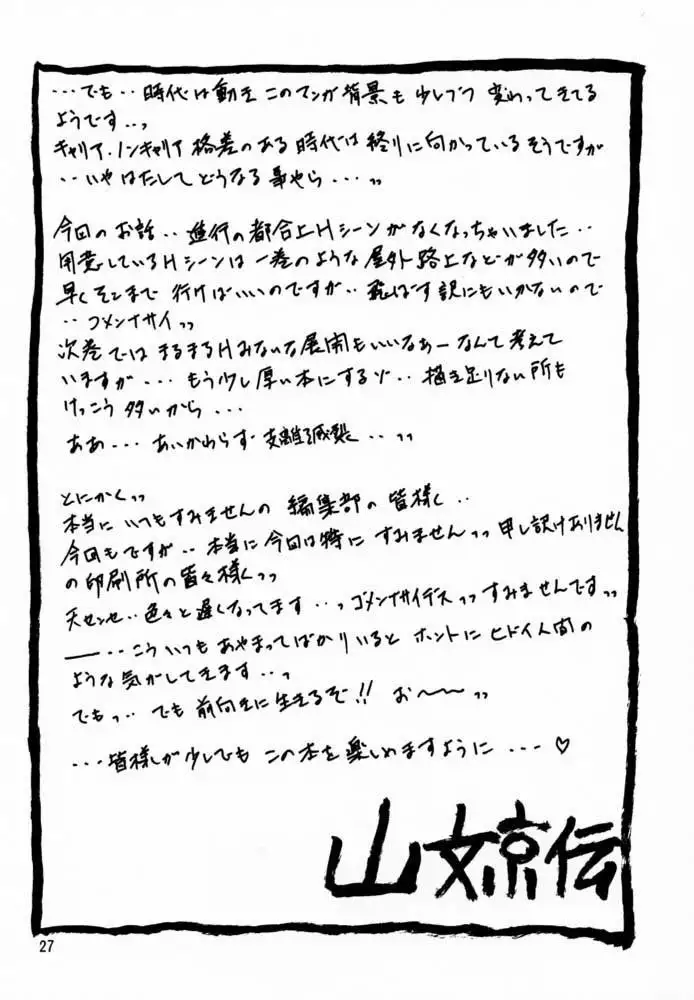 ・・・でも・・時代は動き このマンガ背景も少しづつ 変わってきてる
ようです・・っ
キャリア.ノンキャリア 格差のある 時代は 終りに向かっている そうですが
・・いや はたして どうなる 事やら・・・っっ
今回の お話・・ 進行の都合上Hシーンが なくなっちゃいました・・
用意しているHシーンは 一巻のような 屋外 路上などが 多いので
早く そこまで 行けば いいのですが・・ 飛ばす 訳にもいかないので
・・ゴメンナサイっっ
次巻では まるまるHみたいな展開もいいなぁー なんて 考えて
いますが・・・ もう少し 厚い本にするゾ・・ 描き足りない所も
けっこう 多いから・・・
ああ・・・ あいかわらず 支離滅裂・・っっ
とにかくっっ
本当に いつもすみませんの 編集部の 皆様く・・
今回もですが・・ 本当に 今回は特に すみませんっっ 申し訳けありません
の 印刷所の 皆々様くっっ
天センセ・・色々と 遅くなってます・・っ ゴメンナサイデスっっ すみませんですっっ
――・・こう いつも あやまってばかりいると ホントに ヒドイ人間の
ような気がしてきます・・っ
でもっ・・ でも 前向きに 生きるぞ!! お〜〜っっ
・・・皆様しが 少しでも この本を 楽しめますように・・・♡
山文京伝
27